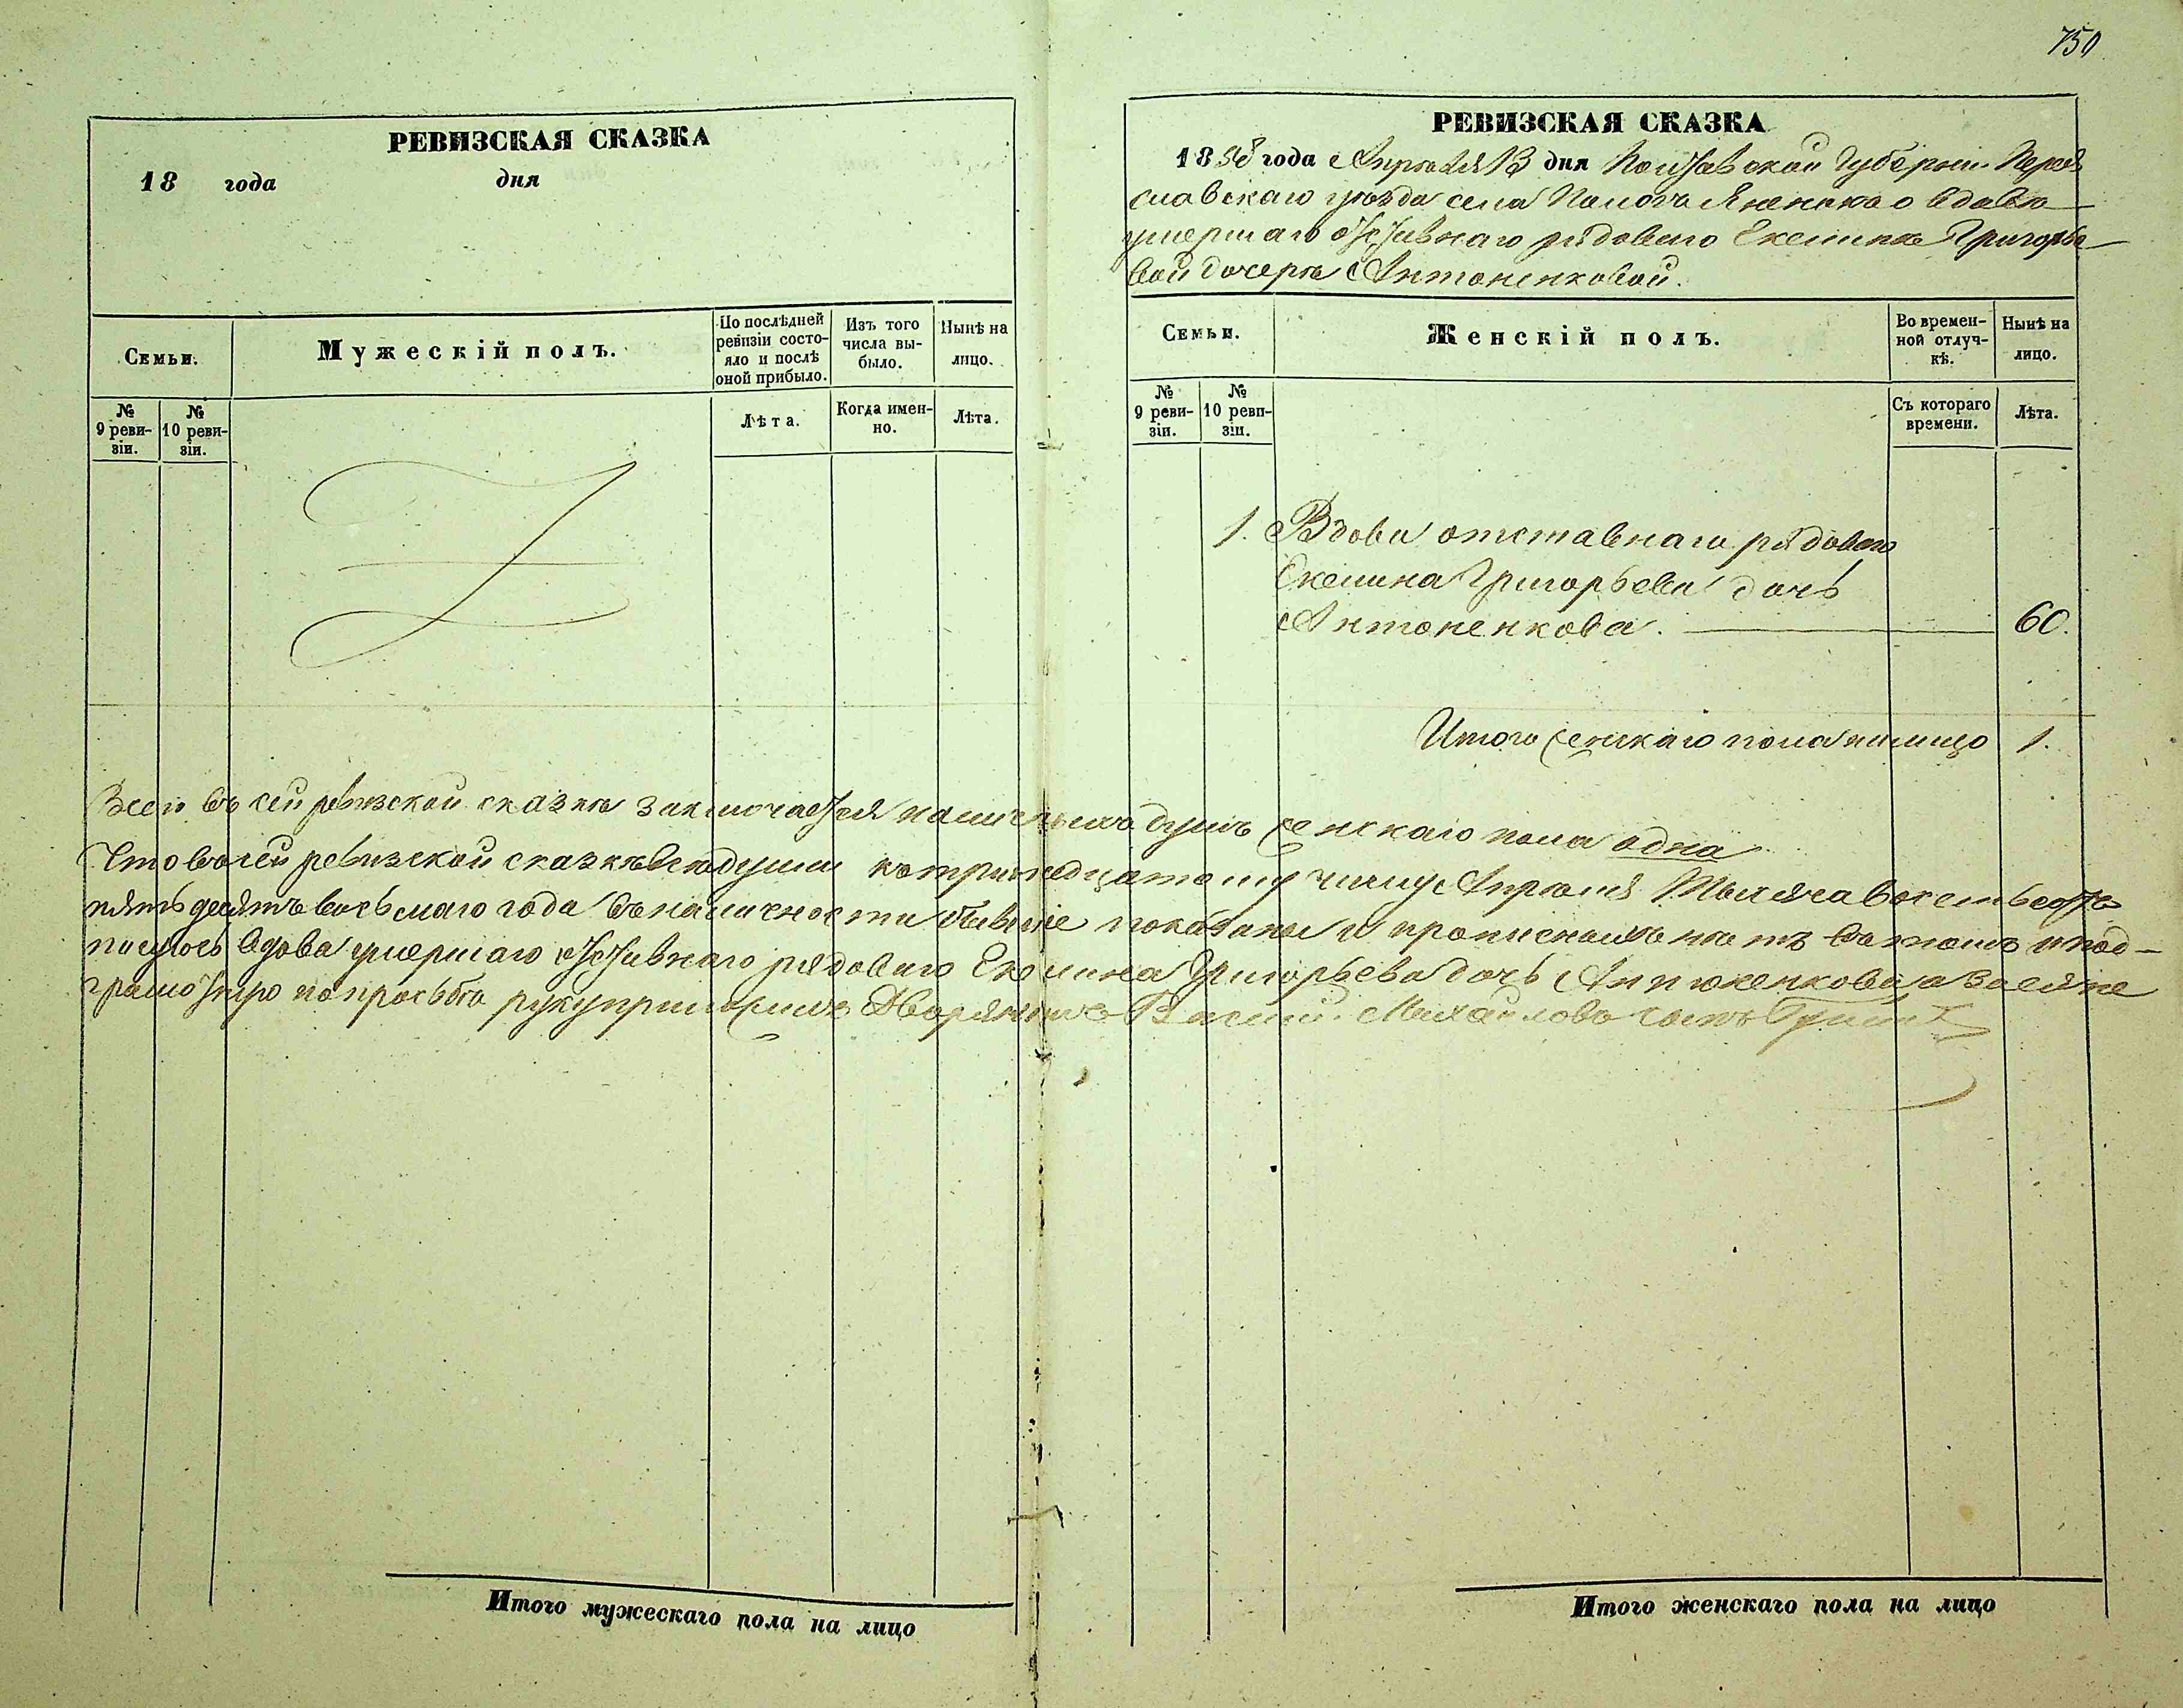 750
РЕВИЗСКАЯ СКАЗКА
18 года дня
Семьи.
Мужескій полъ.
По послѣдней ревизіи состояло и послѣ оной прибыло.
Изъ того числа выбыло.
Нынѣ на лицо.
№ 9 ревизіи.
№ 10 ревизіи.
Лѣта.
Когда именно.
Лѣта.
РЕВИЗСКАЯ СКАЗКА
1858 года Апрѣля 13 дня Полтавской Губерніи Перея
славскаго уѣзда села вдовы
умершаго отставнаго рядоваго Григорье
вой дочери Антоненковой.
Семьи.
Женскій полъ.
Во временной отлучкѣ.
Нынѣ на лицо.
№ 9 ревизіи.
№ 10 ревизіи.
Съ котораго времени.
Лѣта.
1. Вдова отставнаго рядоваго
Григорьева дочь
Антоненкова. 60.
Итого женскаго пола налицо 1.
Всего въ сей ревизской сказкѣ заключается наличныхъ душъ женскаго пола одна
Что въ сей ревизской сказкѣ всѣ души къ тринадцатому числу Апрѣля Тысяча восемьсотъ
пятьдесятъ восьмаго года въ наличности бывшіе показаны и прописныхъ нѣтъ въ томъ и под-
вдова умершаго отставнаго рядоваго Григорьева дочь а за нее не
по просьбѣ руку приложилъ Дворянинъ Михайловъ сынъ
Итого мужескаго пола на лицо
Итого женскаго пола на лицо